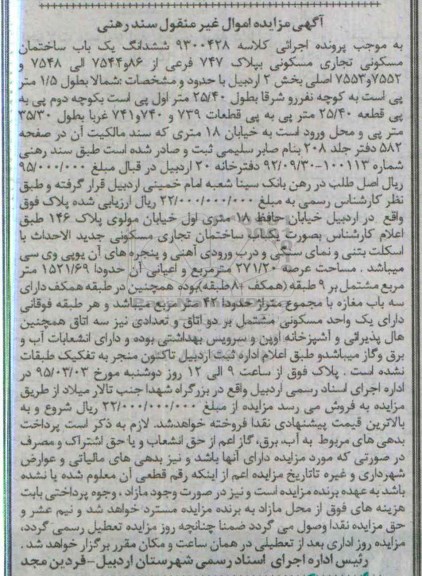 آگهی مزایده اموال غیر منقول سند رهنی
به موجب پرونده اجرائی کلاسه ۹۳۰۰۴۲۸ ششدانگ یک باب ساختمان
مسکونی تجاری مسکونی بپلاک ۷۴۷ فرعی از ۸۶و۷۵۴۴ الی ۷۵۴۸ و
۷۵۵۲و۷۵۵۳ اصلی بخش ۲ اردبیل با حدود و مشخصات :شمالا بطول ۱/۵ متر
پی است به کوچه نفررو شرقا بطول ۲۵/۴۰ متر اول پی است بکوچه دوم پی به
پی قطعه ۲۵/۴۰ متر پی به پی قطعات ۷۳۹ و ۷۴۰و۷۴۱ غربا بطول ۳۵/۳۰
متر پی و محل ورود است به خیابان ۱۸ متری که سند مالکیت آن در صفحه
۵۸۲ دفتر جلد ۲۰۸ بنام صابر سلیمی ثبت و صادر شده است طبق سند رهنی
شماره ۱۰۰۱۱۳-۹۲/۰۹/۳۰ دفترخانه ۲۰ اردبیل در قبال مبلغ ۹۵/۰۰۰/۰۰۰
ریال اصل طلب در رهن بانک سینا شعبه امام خمینی اردبیل قرار گرفته و طبق
نظر کارشناس رسمی به مبلغ ۲۲/۰۰۰/۰۰۰/۰۰۰ ریال ارزیابی شده پلاک فوق
واقع در اردبیل خیابان حافظ ۱۸ متری اول خیابان مولوی پلاک ۱۴۶ طبق
اعلام کارشناس بصورت یکباب ساختمان تجاری مسکونی جدید الاحداث با
اسکلت بتنی و نمای سنگی و درب ورودی آهنی و پنجره های آن یوپی وی سی
میباشد . مساحت عرصه ۲۷۱/۲۰ مترمربع و اعیانی آن حدودا ۱۵۲۱/۶۹ متر
مربع مشتمل بر ۹ طبقه (همکف ۸۰طبقه)بوده همچنین در طبقه همکف دارای
سه باب مغازه با مجموع متراژ حدودا ۴۲ متر مربع میباشد و هر طبقه فوقانی
دارای یک واحد مسکونی مشتمل بر دو اتاق و تعدادی نیز سه اتاق همچنین
هال پذیرائی و آشپزخانه اوپن و سرویس بهداشتی بوده و دارای انشعابات آب و
برق وگاز میباشدو طبق اعلام اداره ثبت اردبیل تاکنون منجر به تفکیک طبقات
نشده است . پلاک فوق از ساعت ۹ الی ۱۲ روز دوشنبه مورخ ۹۵/۰۳/۰۳ در
اداره اجرای اسناد رسمی اردبیل واقع در بزرگراه شهدا جنب تالار میلاد از طریق
مزایده به فروش می رسد مزایده از مبلغ ۲۲/۰۰۰/۰۰۰/۰۰۰ ریال شروع و به
بالاترین قیمت پیشنهادی نقدا فروخته خواهدشد. لازم به ذکر است پرداخت
بدهی های مربوط به آب، برق، گاز اعم از حق انشعاب و یا حق اشتراک و مصرف
در صورتی که مورد مزایده دارای آنها باشد و نیز بدهی های مالیاتی و عوارض
شهرداری و غیره تاتاریخ مزایده اعم از اینکه رقم قطعی آن معلوم شده یا نشده
باشد به عهده برنده مزایده است و نیز در صورت وجود مازاد ، وجوه پرداختی بابت
هزینه های فوق از محل مازاد به برنده مزایده مسترد خواهد شد و نیم عشر و
حق مزایده نقدا وصول می گردد ضمنا چنانچه روز مزایده تعطیل رسمی گردد،
مزایده روز اداری بعد از تعطیلی در همان ساعت و مکان مقرر برگزار خواهد شد .
رئیس اداره اجرای اسناد رسمی شهرستان اردبیل-فردین مجد